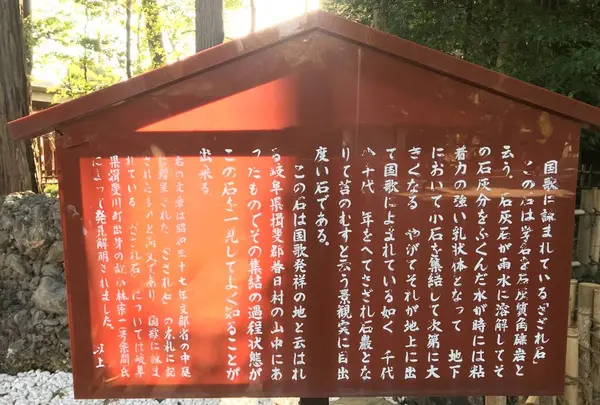 国歌に詠まれている「さざれ石」
この石は学名を石灰質角礫岩と
云う。石灰石が雨水に溶解してそ
の石灰分をふくんだ水が時には粘
着力の強い乳状体となって 地下
において小石を集結して次第に大
きくなる やがてそれが地上に出
て国歌によまれている如く 千代
八千代 年をへてさざれ石巌とな
りて苔のむすと云う景観実に目出
度い石である。
この石は国歌発祥の地と云はれ
る岐阜県揖斐郡春日村の山中にあ
ったものでその集結の過程状態が
この石を一見してよく知ることが
出来る
の文章は昭和三十七年文部省の中庭
に されたさざれ石の 札に記
されたものと同文であり 国歌に詠ま
れている「さざれ石」については岐阜
県揖斐川町出身の 小林宗一 氏
によって発見解明されました。 以上